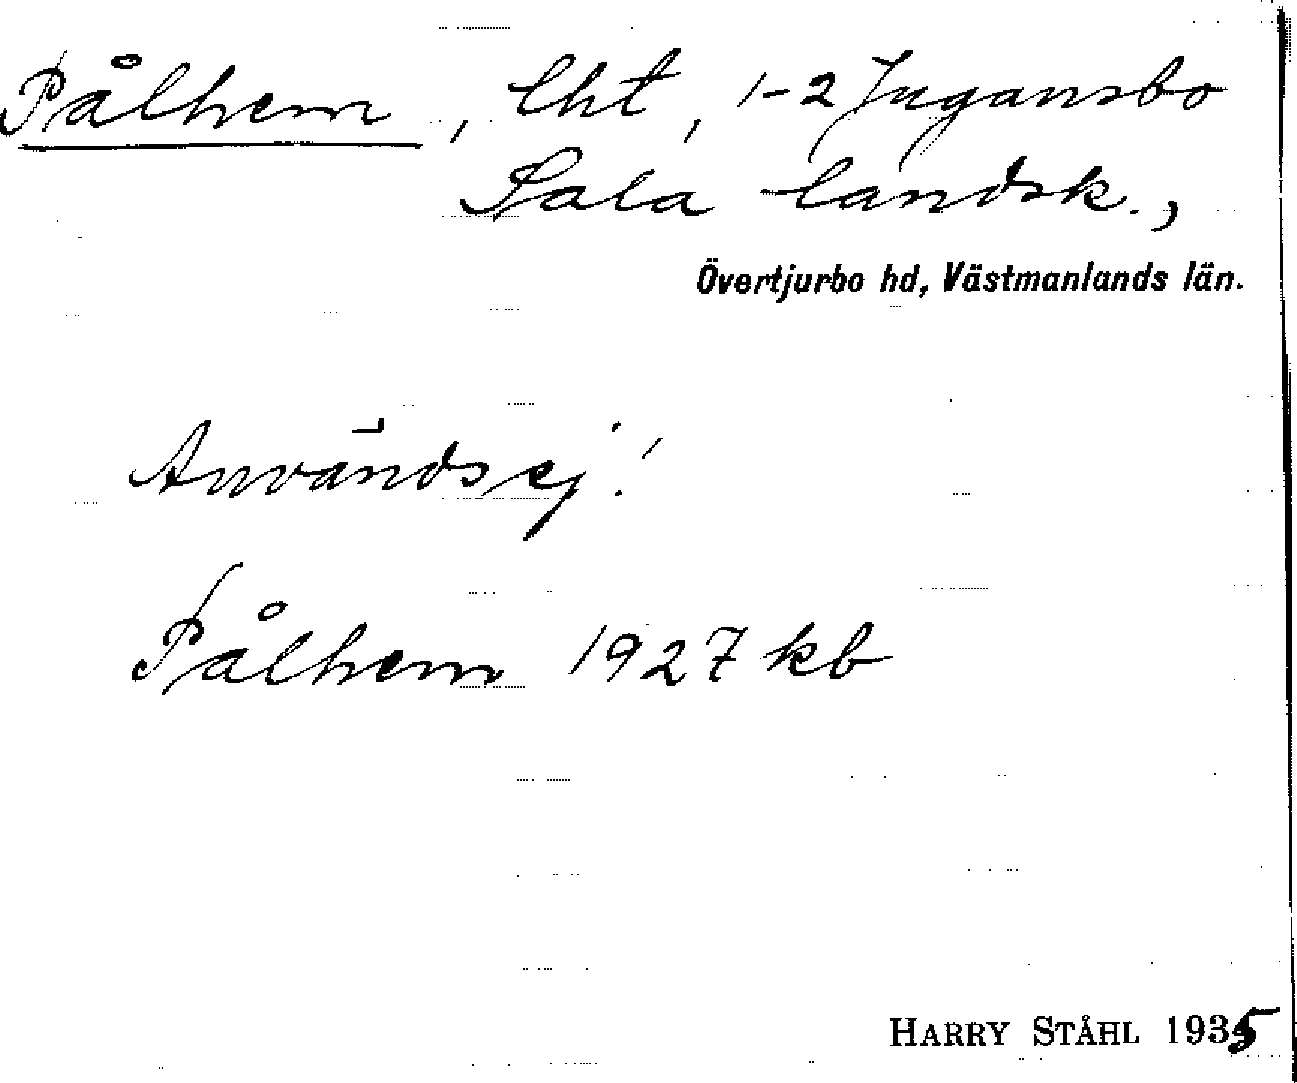 Pålhem, lht, 1-2 Jugansbo
Sala landsk.,
Övertjurbo hd, Västmanlands län.
Används ej!
Pålhem 1927 kb
HARRY STÅHL 1935